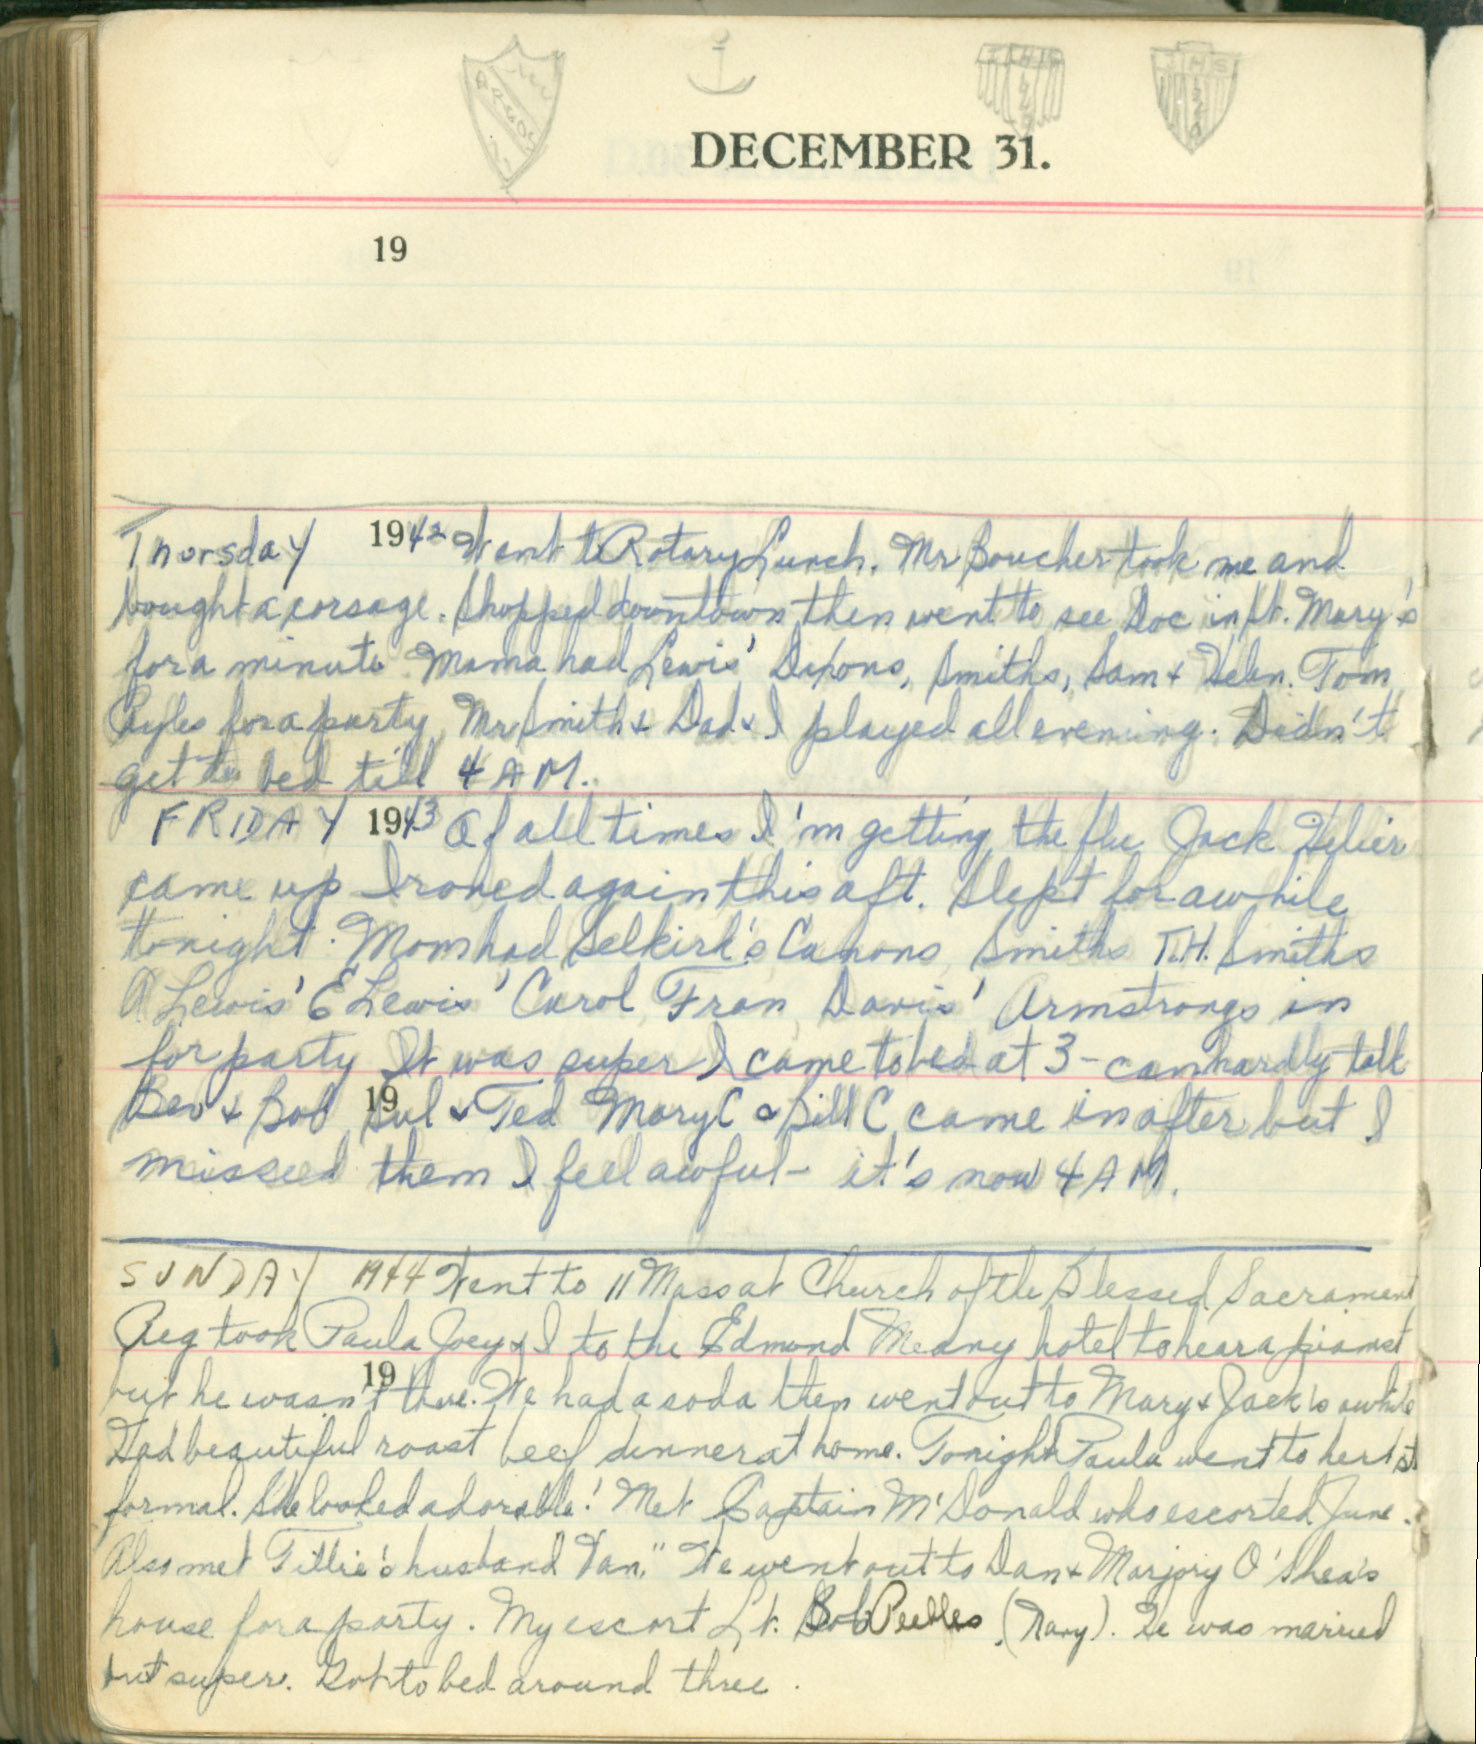 J H S
DECEMBER 31.
19
Thursday 1942 Went to Rotary Lunch. Mr Boucher took me and
bought a corsage. Shopped downtown then went to see Doc in St. Mary's
for a minute Mama had Lewis' Dixons, Smiths, Sam & Helen. Tom
for a party Mr Smith & Dad & I played all evening. Didn't
get to bed till 4 A M.
FRIDAY 1943 Of all times I'm getting the flu Jack
came up Ironed again this aft. Slept for awhile
tonight. Mom had Selkirk's Canons Smiths T.H. Smiths
A Lewis' E Lewis' Carol, Fran, Davis' Armstrongs in
for party It was super I came to bed at 3 - can hardly talk
19
Bev & Bob & Ted Mary C & Bill C came in after but I
missed them I feel awful - it's now 4 A M.
SUNDAY 1944 Went to 11 Mass at Church of the Blessed Sacrament
Reg took Paula Joey & I to the Edmond Meany hotel to hear a pianist
19
but he wasn't there. We had a soda then went out to Mary & Jack's awhile
Had beautiful roast beef dinner at home. Tonight Paula went to her 1st
formal. She looked adorable! Met Captain M'Donald who escorted June.
Also met Tillie's husband "Van." We went out to Dan & Marjory O'Shea's
house for a party. My escort Lt. Bob Peebles (Navy). He was married
but super. Got to bed around three.